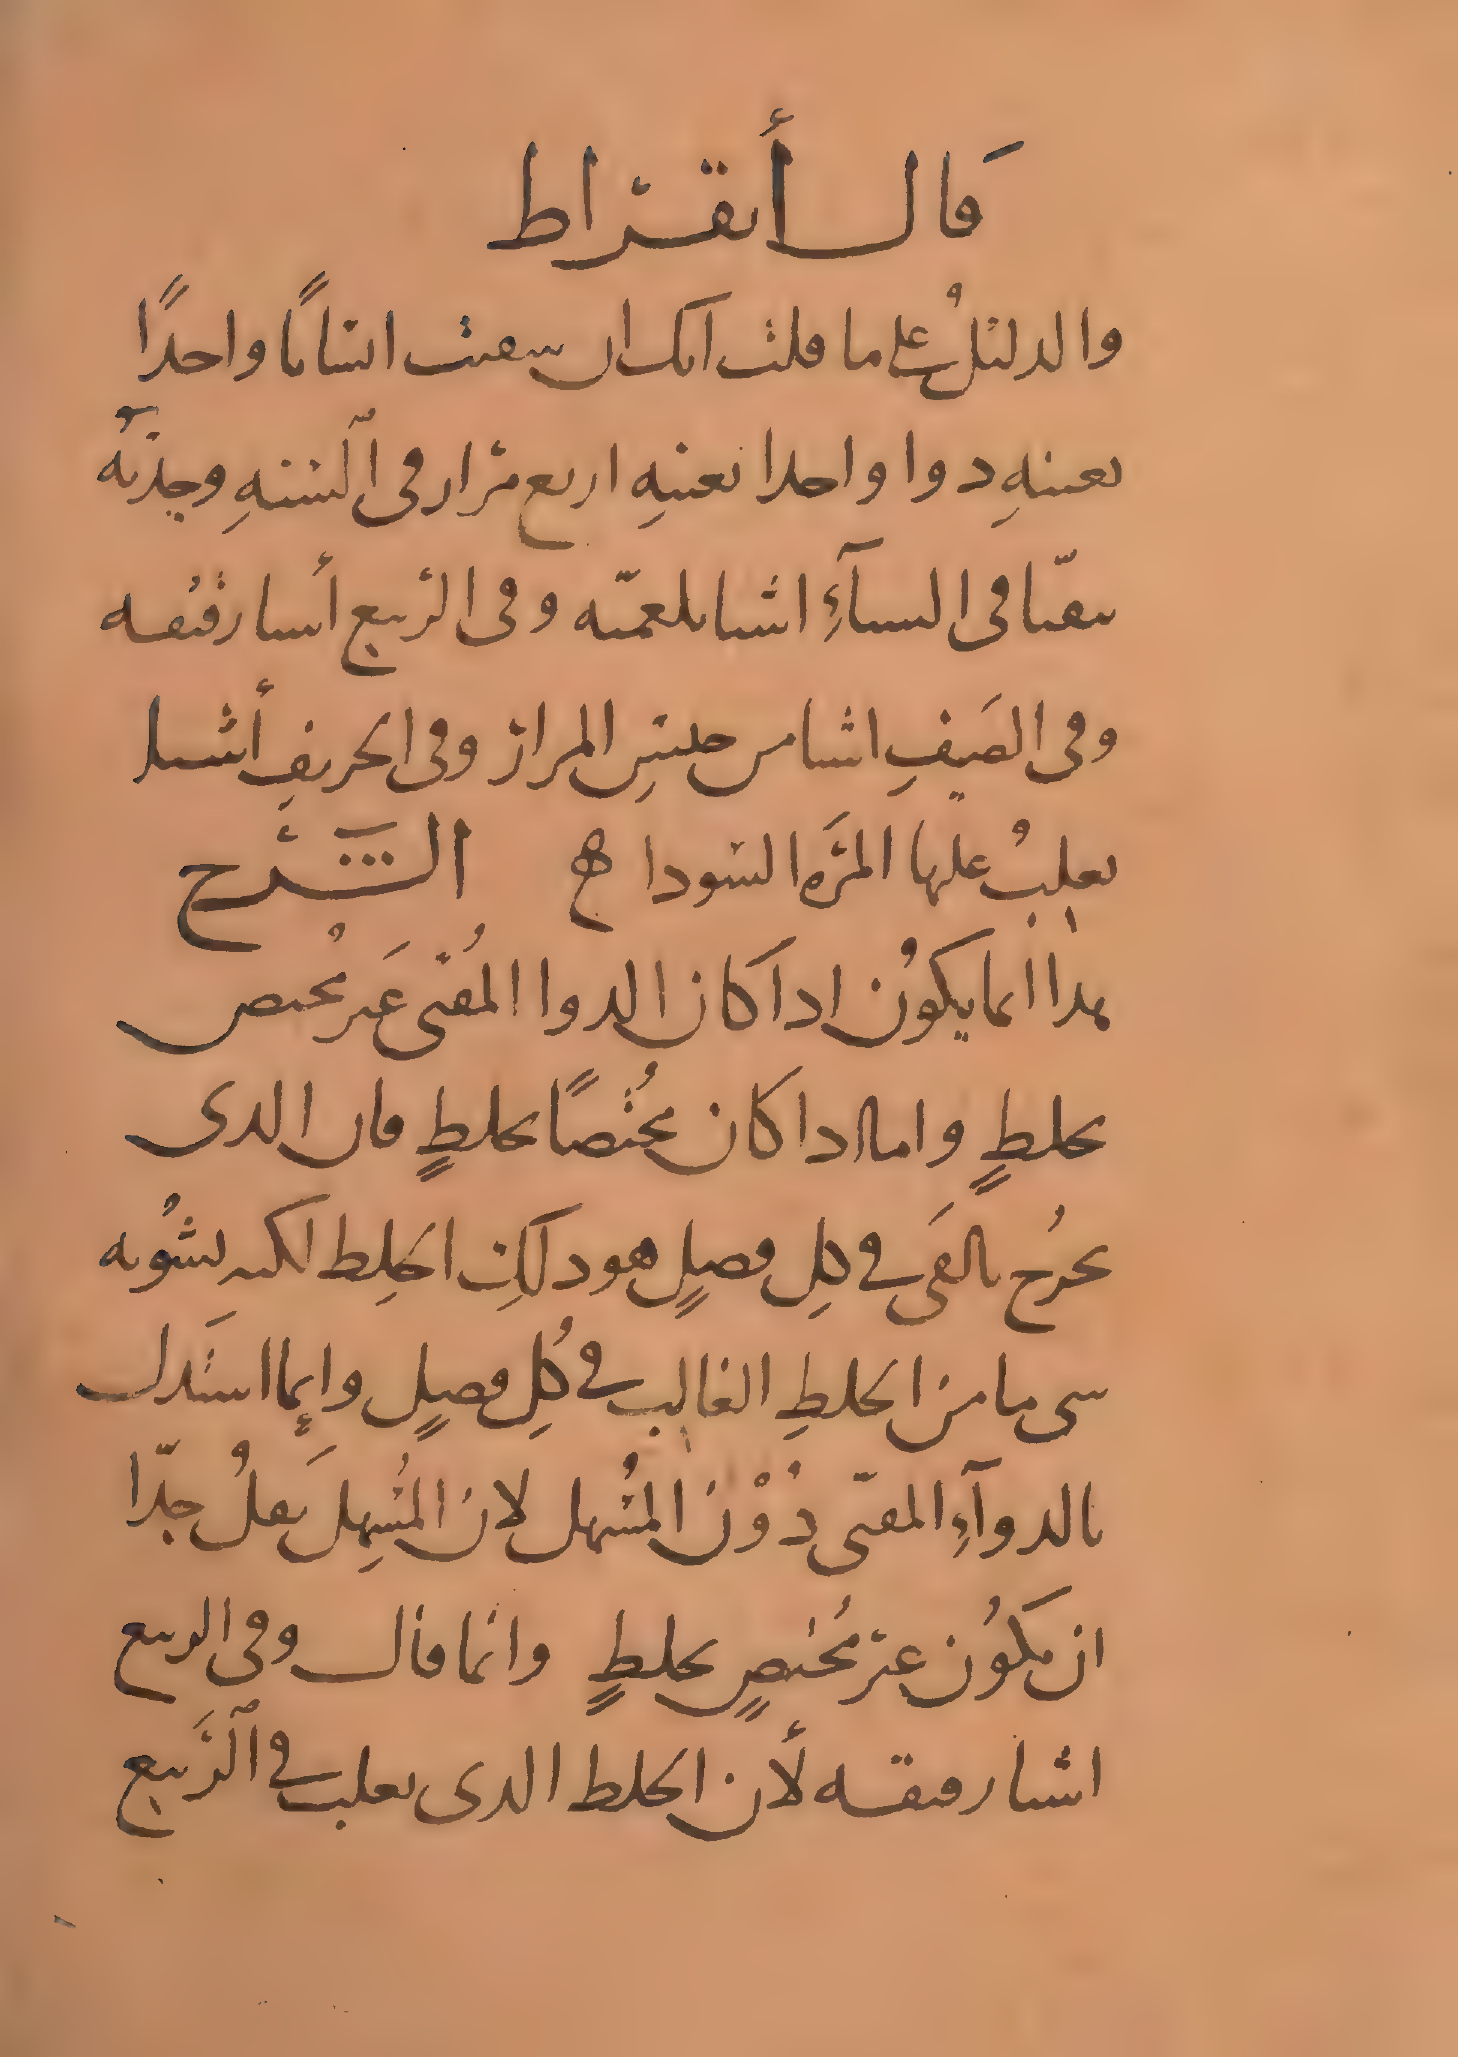 قال أبقراط
والدليلُ على ما قلت انك ان سقيت انسانًا واحدًا
بعينهِ دوا واحدا بعينهِ اربع مرار في السنهِ وجدته
يتقيّا في الستآءِ اشيا بلغميّه وفي الربيع أشيا رقيقه
وفي الصَيفِ اشيا من جنسِ المرار وفي الخريفِ أشيا
يغلبُ عليها المرَّه السودا ه الشَّرح
هذا انما يكونُ اذا كان الدوا المُقيى غَير مُختص
بخلطٍ واما اذا كان مُختصًا بخلطٍ فان الذى
يخرُج بالقَى في كلِ فصلٍ هو ذلكِ الخلِط لكنه يشُوبه
شى ما من الخلطِ الغالب في كُلِ فصلٍ وإنما استَدل
بالدوآءِ المقيّى دُوْنَ المُسْهل لان المُسهِل يَقلُ جدّا
ان يكوُن غير مُختصٍ بخلطٍ وانما قال وفي الربيع
اشيا رقيقه لأن الخلط الذى يغلب في الرَّبيع